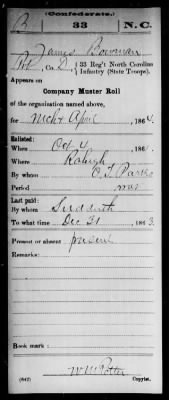 (Confederate.)
B 33 N.C.
James Bowman
Pvt, Co. D, 33 Reg't North Carolina
Infantry (State Troops).
Appears on
Company Muster Roll
of the organization named above,
for Mch & April, 1864.
Enlisted:
When Oct 4, 186
Where Raleigh
By whom
Period war
Last paid:
By whom Sudderth
To what time Dec 31, 1863.
Present or absent present
Remarks:
Book mark:
W M Potter
(642) Copyist.